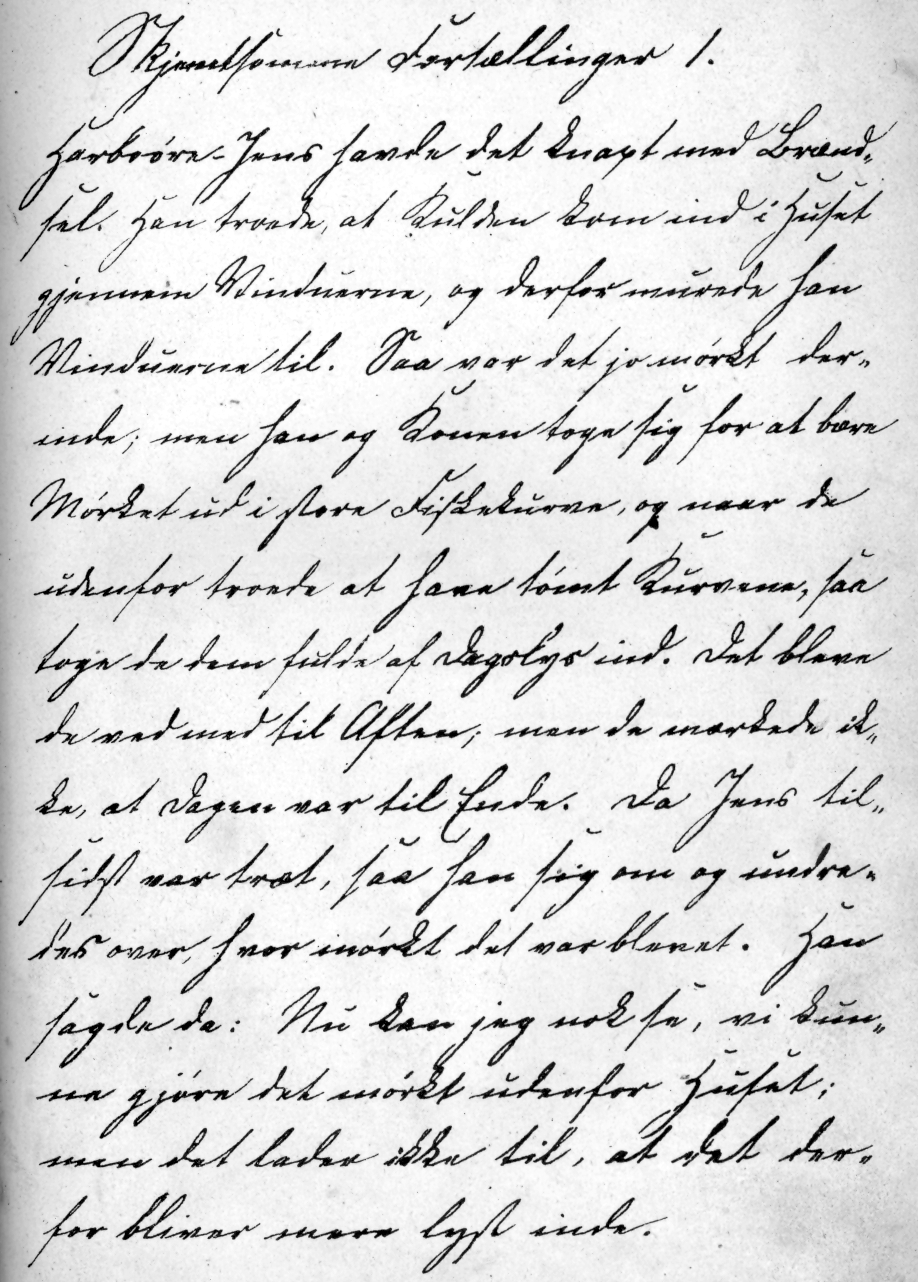 Skjemtsomme Fortællinger 1.
Harboöre-Jens havde det knapt med Brænd-
sel. Han troede, at Kulden kom ind i Huset
gjennem Vinduerne, og derfor murede han
Vinduerne til. Saa var det jo mørkt der-
inde; men han og Konen toge sig for at bære
Mørket ud i store Fiskekurve, og naar de
udenfor troede at have tømt Kurvene, saa
toge de dem fulde af Dagslys ind. Det bleve
de ved med til Aften; men de mærkede ik-
ke, at Dagen var til Ende. Da Jens til-
sidst var træt, saa han sig om og undre-
des over, hvor mørkt det var blevet. Han
sagde da: Nu kan jeg nok se, vi kun-
ne gjøre det mørkt udenfor Huset;
men det lader ikke til, at det der-
for bliver mere lyst inde.